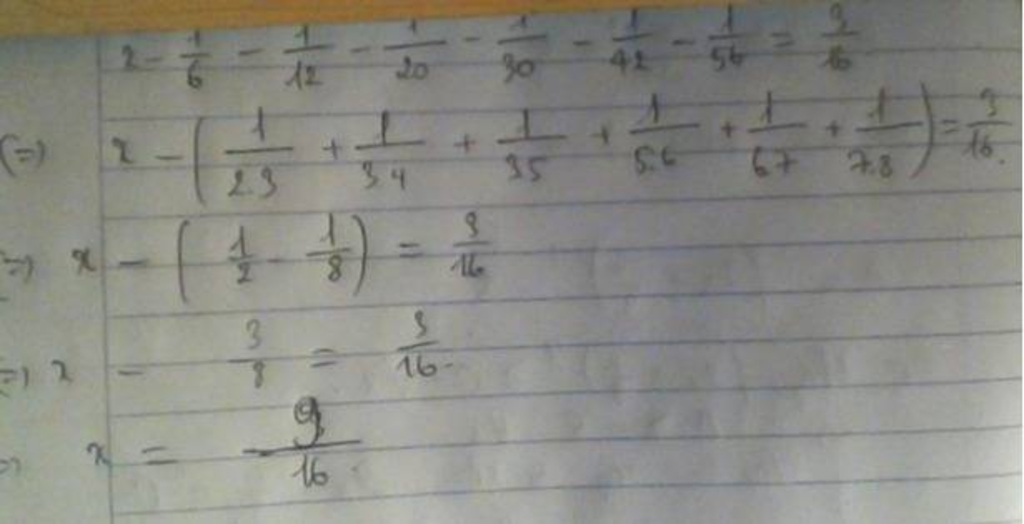 x - 1/6 - 1/12 - 1/20 - 1/30 - 1/42 - 1/56 = 3/16
(=) x - ( 1/2.3 + 1/3.4 + 1/3.5 + 1/5.6 + 1/6.7 + 1/7.8 ) = 3/16.
(=) x - ( 1/2 - 1/8 ) = 3/16
(=) x - 3/8 = 3/16.
=) x = 9/16.